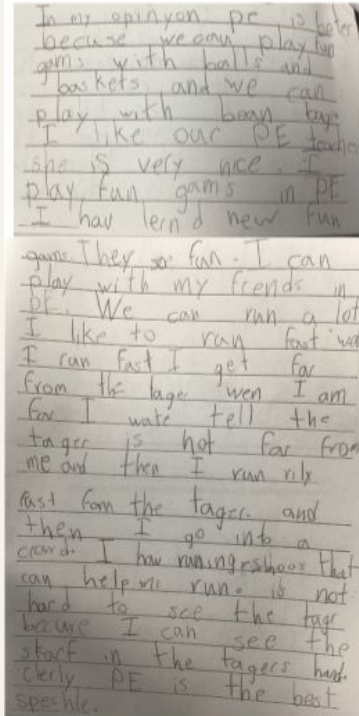 In my opinyon pe is beter
becuse we can play fun
gams with balls and
baskets and we can
play with bean bags.
I like our PE teacher
she is very nice. I
play fun gams in PE
I hav lern'd new fun
gams. They so fun. I can
play with my frends in
PE. We can run a lot
I like to run fast
I run fast I get far
from the tager wen I am
far I wate tell the
tager is not far from
me and then I run rily
fast fom the tager. and
then I go into a
crowd. I hav runing shoos that
can help me run. is not
hard to see the tagr
becuse I can see the
skarf in the tagers hand.
clerly PE is the best
speshle.